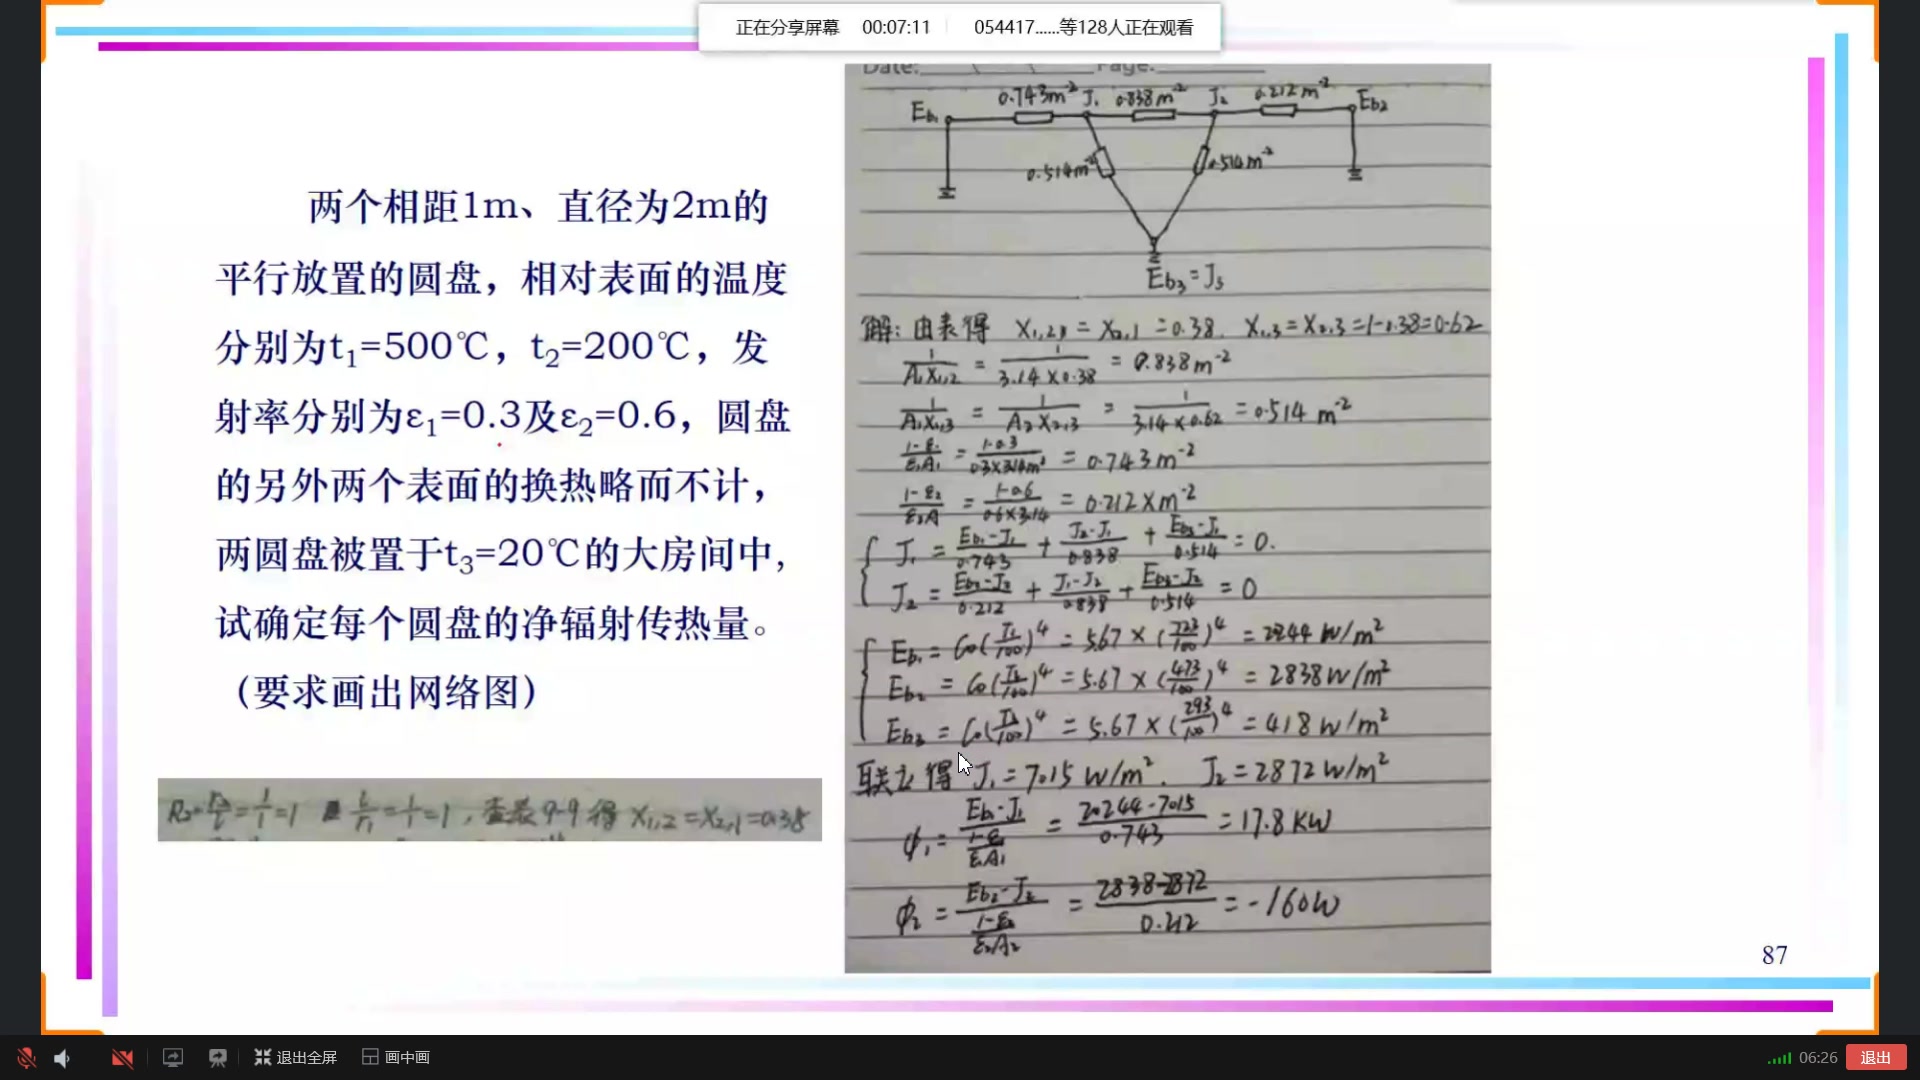 正在分享屏幕 00:07:11 054417......等128人正在观看
两个相距1m、直径为2m的
平行放置的圆盘，相对表面的温度
分别为t₁=500℃，t₂=200℃，发
射率分别为ε₁=0.3及ε₂=0.6，圆盘
的另外两个表面的换热略而不计，
两圆盘被置于t₃=20℃的大房间中，
试确定每个圆盘的净辐射传热量。
（要求画出网络图）
查表9-9得 X₁,₂=X₂,₁=0.38
Date: Page:
Eb₁ 0.743m⁻² J₁ 0.838m⁻² J₂ 0.212m⁻² Eb₂
0.514m⁻² 0.514m⁻²
Eb₃=J₃
解：由表得 X₁,₂=X₂,₁=0.38. X₁,₃=X₂,₃=1-0.38=0.62
1/A₁X₁,₂ = 1/3.14×0.38 = 0.838m⁻²
1/A₁X₁,₃ = 1/A₂X₂,₃ = 1/3.14×0.62 = 0.514 m⁻²
1-ε₁/ε₁A₁ = 1-0.3/0.3×3.14m² = 0.743m⁻²
1-ε₂/ε₂A = 1-0.6/0.6×3.14 = 0.212×m⁻²
J₁ = Eb₁-J₁/0.743 + J₂-J₁/0.838 + Eb₃-J₁/0.514 = 0.
J₂ = Eb₂-J₂/0.212 + J₁-J₂/0.838 + Eb₃-J₂/0.514 = 0
Eb₁ = C₀(T₁/100)⁴ = 5.67×(773/100)⁴ = 20244 W/m²
Eb₂ = C₀(T₂/100)⁴ = 5.67×(473/100)⁴ = 2838W/m²
Eb₃ = C₀(T₃/100)⁴ = 5.67×(293/100)⁴ = 418W/m²
联立得 J₁=7015 W/m². J₂=2872W/m²
φ₁ = Eb₁-J₁/(1-ε₁/ε₁A₁) = 20244-7015/0.743 = 17.8KW
φ₂ = Eb₂-J₂/(1-ε₂/ε₂A₂) = 2838-2872/0.212 = -160W
87
退出全屏 画中画 06:26 退出